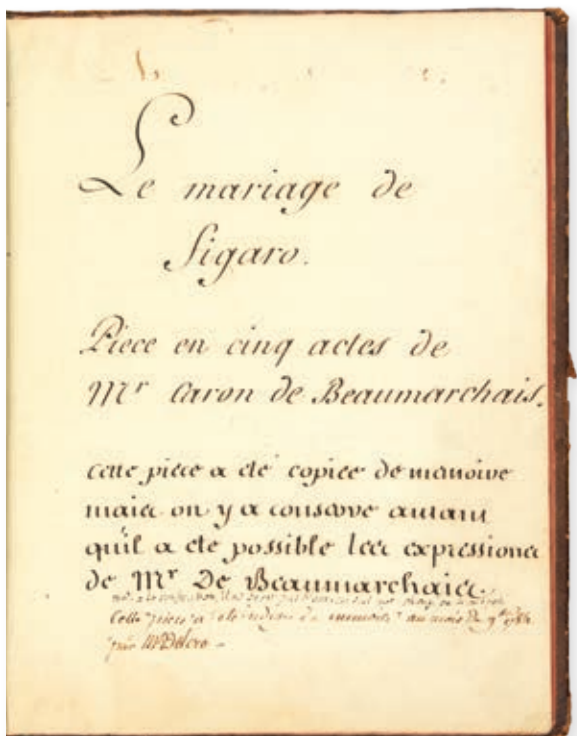 Le mariage de
Figaro.
Piece en cinq actes de
Mr Caron de Beaumarchais.
cette piece a eté copiée de memoire
mais on y a conservé autant
qu'il a eté possible les expressions
de Mr De Beaumarchais.
Cette piece a eté de memoire au mois de
par Mr